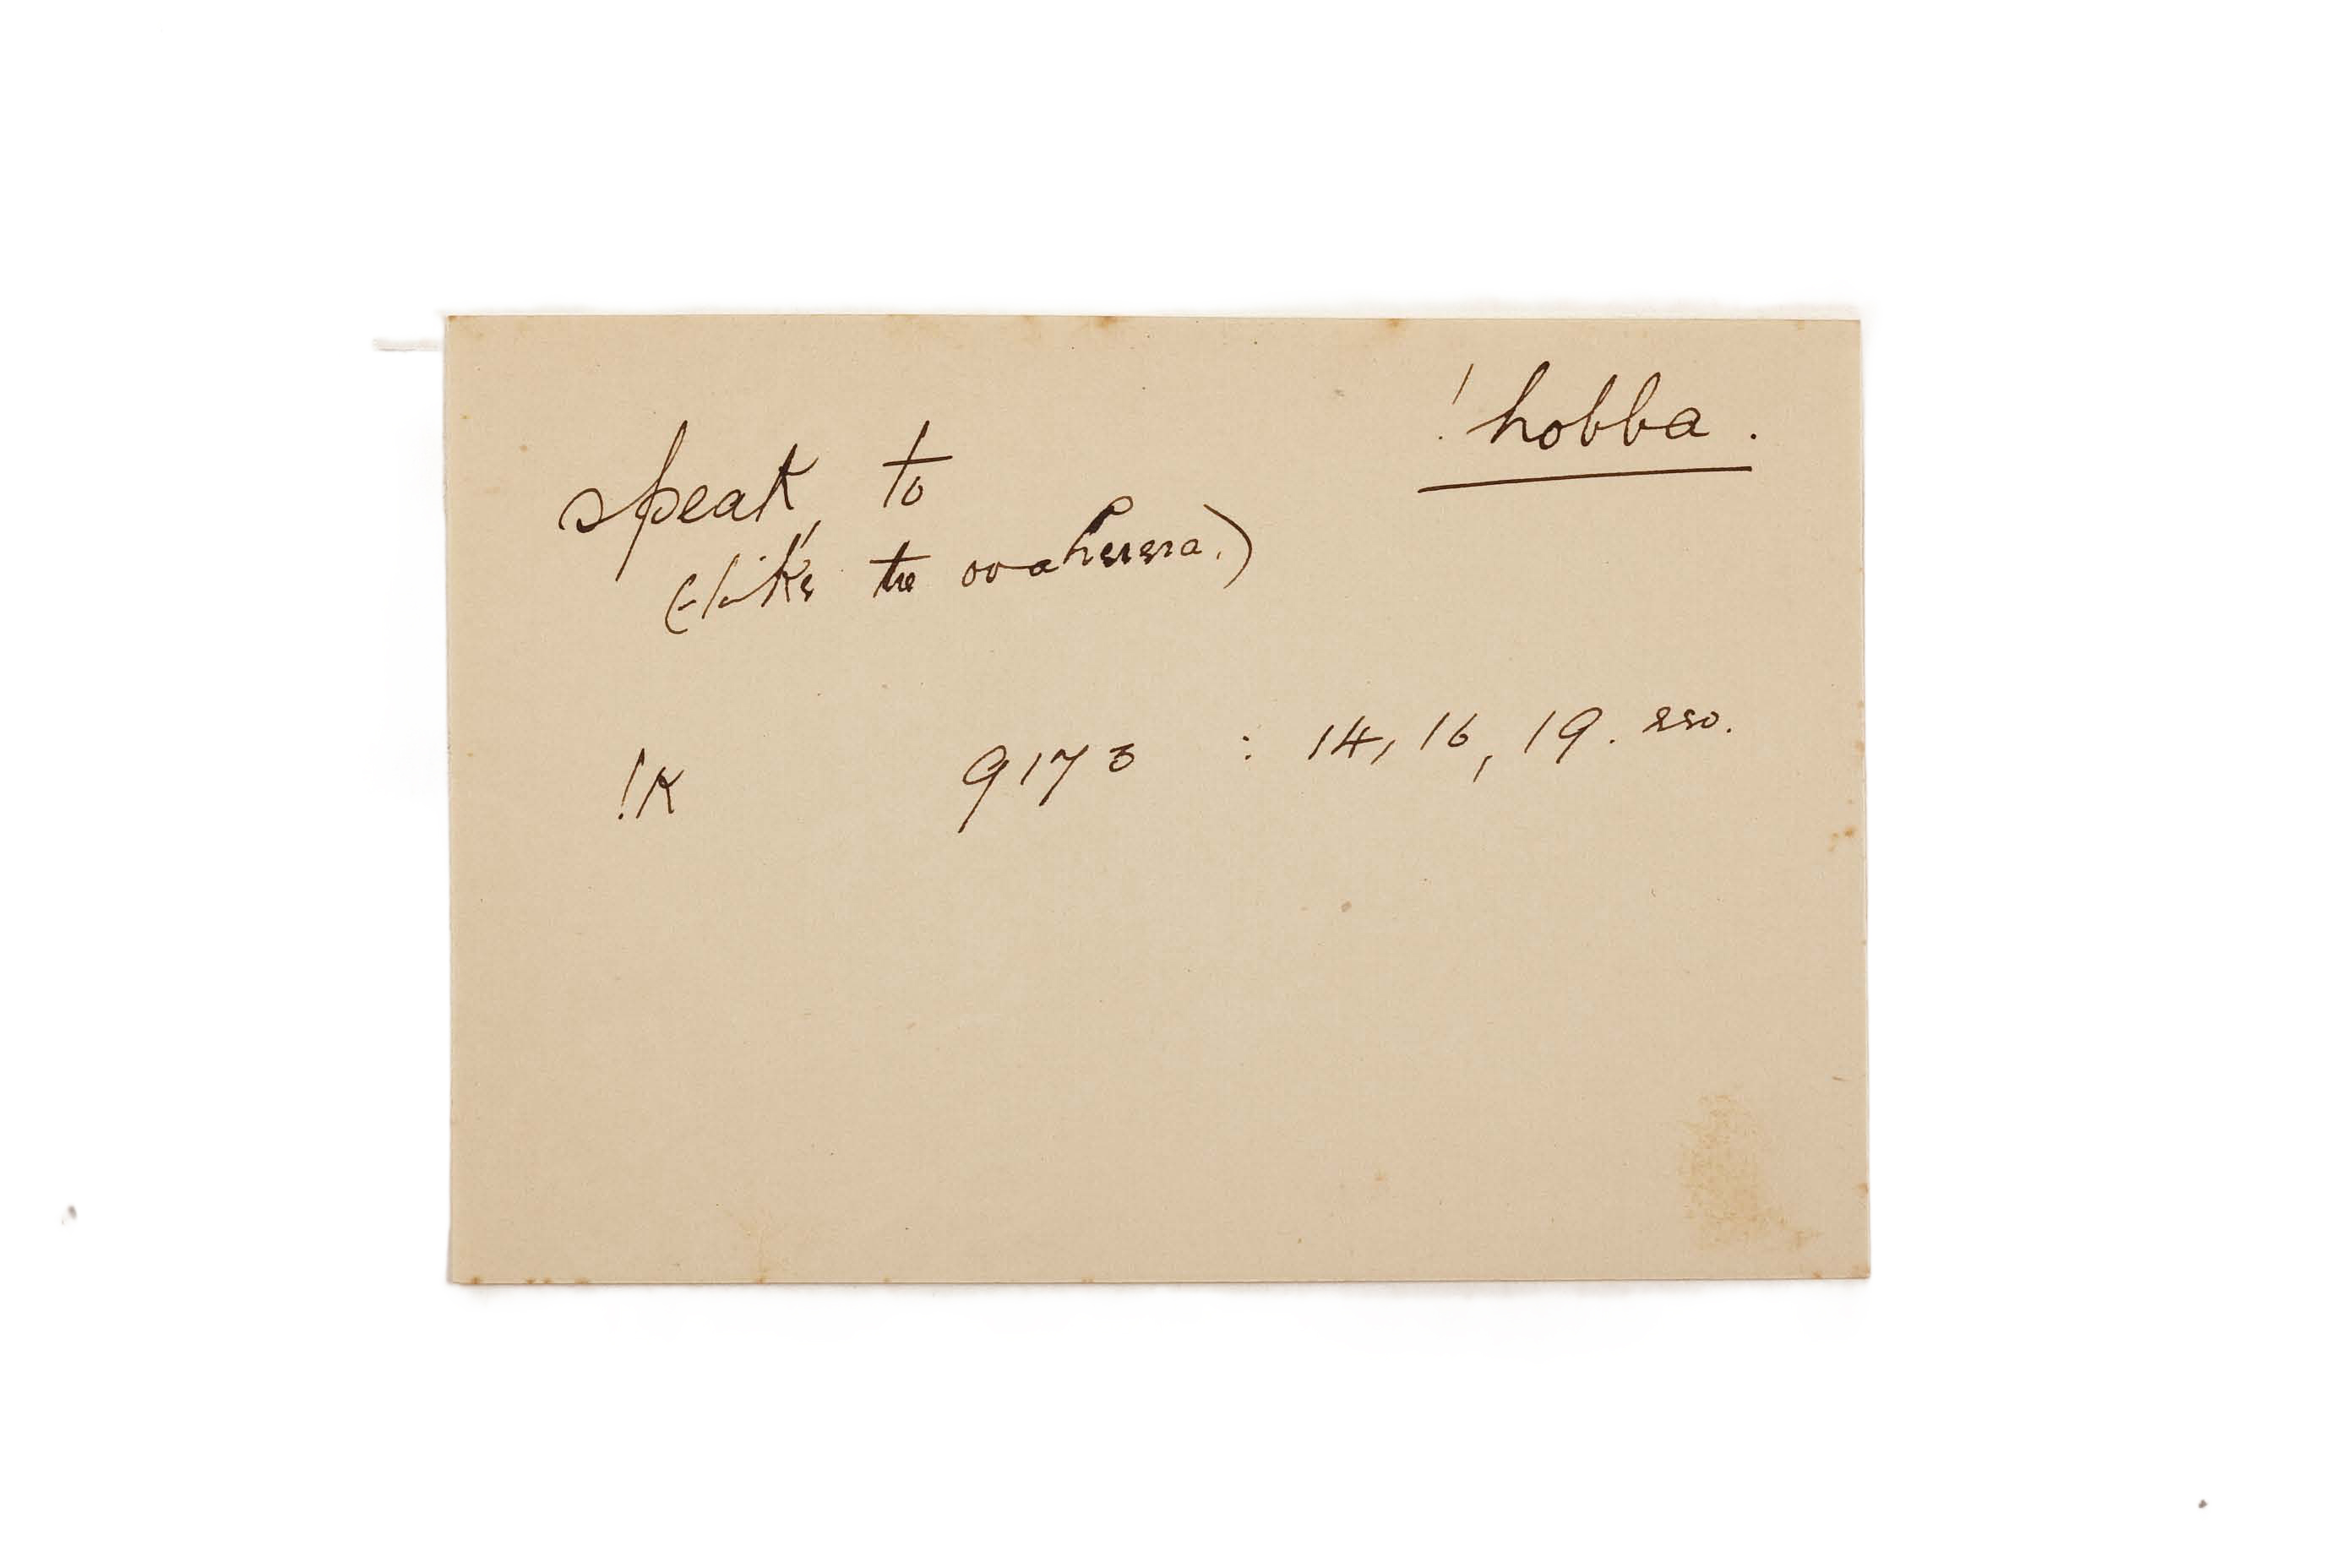 ! hobba.
speak, to
(like the ovaherera.)
!k 9173 : 14, 16, 19. rev.